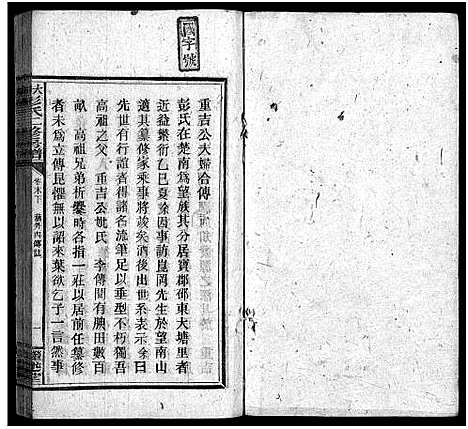 國字號
重吉公大婦合傳
彭氏在楚南為望族其分居寶郡邵東大塘里者
近益繁衍乙巳夏余因事訪崑岡先生於望南山
適其纂修家乘事將竣矣酒後出世系表示余曰
先世有潛行者得諸名流筆足以垂型不朽獨吾
高祖之父重吉公姚氏李傳間有腴田數百
畝高祖兄弟析爨時各指一莊以居前任纂修
者未為立傳昆懼無以詔來葉欲乞子一言然事
彭氏二修
卷末下